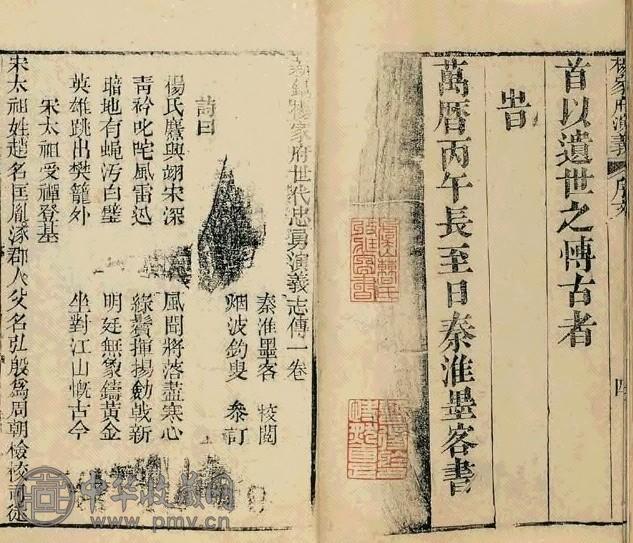 楊家府演義 序 四
首以遺世之慱古者
旹
萬曆丙午長至日秦淮墨客書
新鐫楊家府世代忠勇演義志傳一卷
秦淮墨客 校閱
烟波釣叟 叅訂
詩曰
楊氏麃興翊宋深 風聞將落盡寒心
青衿叱咤風雷迅 綠鬢揮揚劍戟新
暗地有蠅汚白璧 明廷無象鑄黃金
英雄跳出樊籠外 坐對江山慨古今
宋太祖受禪登基
宋太祖姓趙名匡胤涿郡人父名弘殷爲周朝檢校司徒
中华收藏网
www.pmv.cn